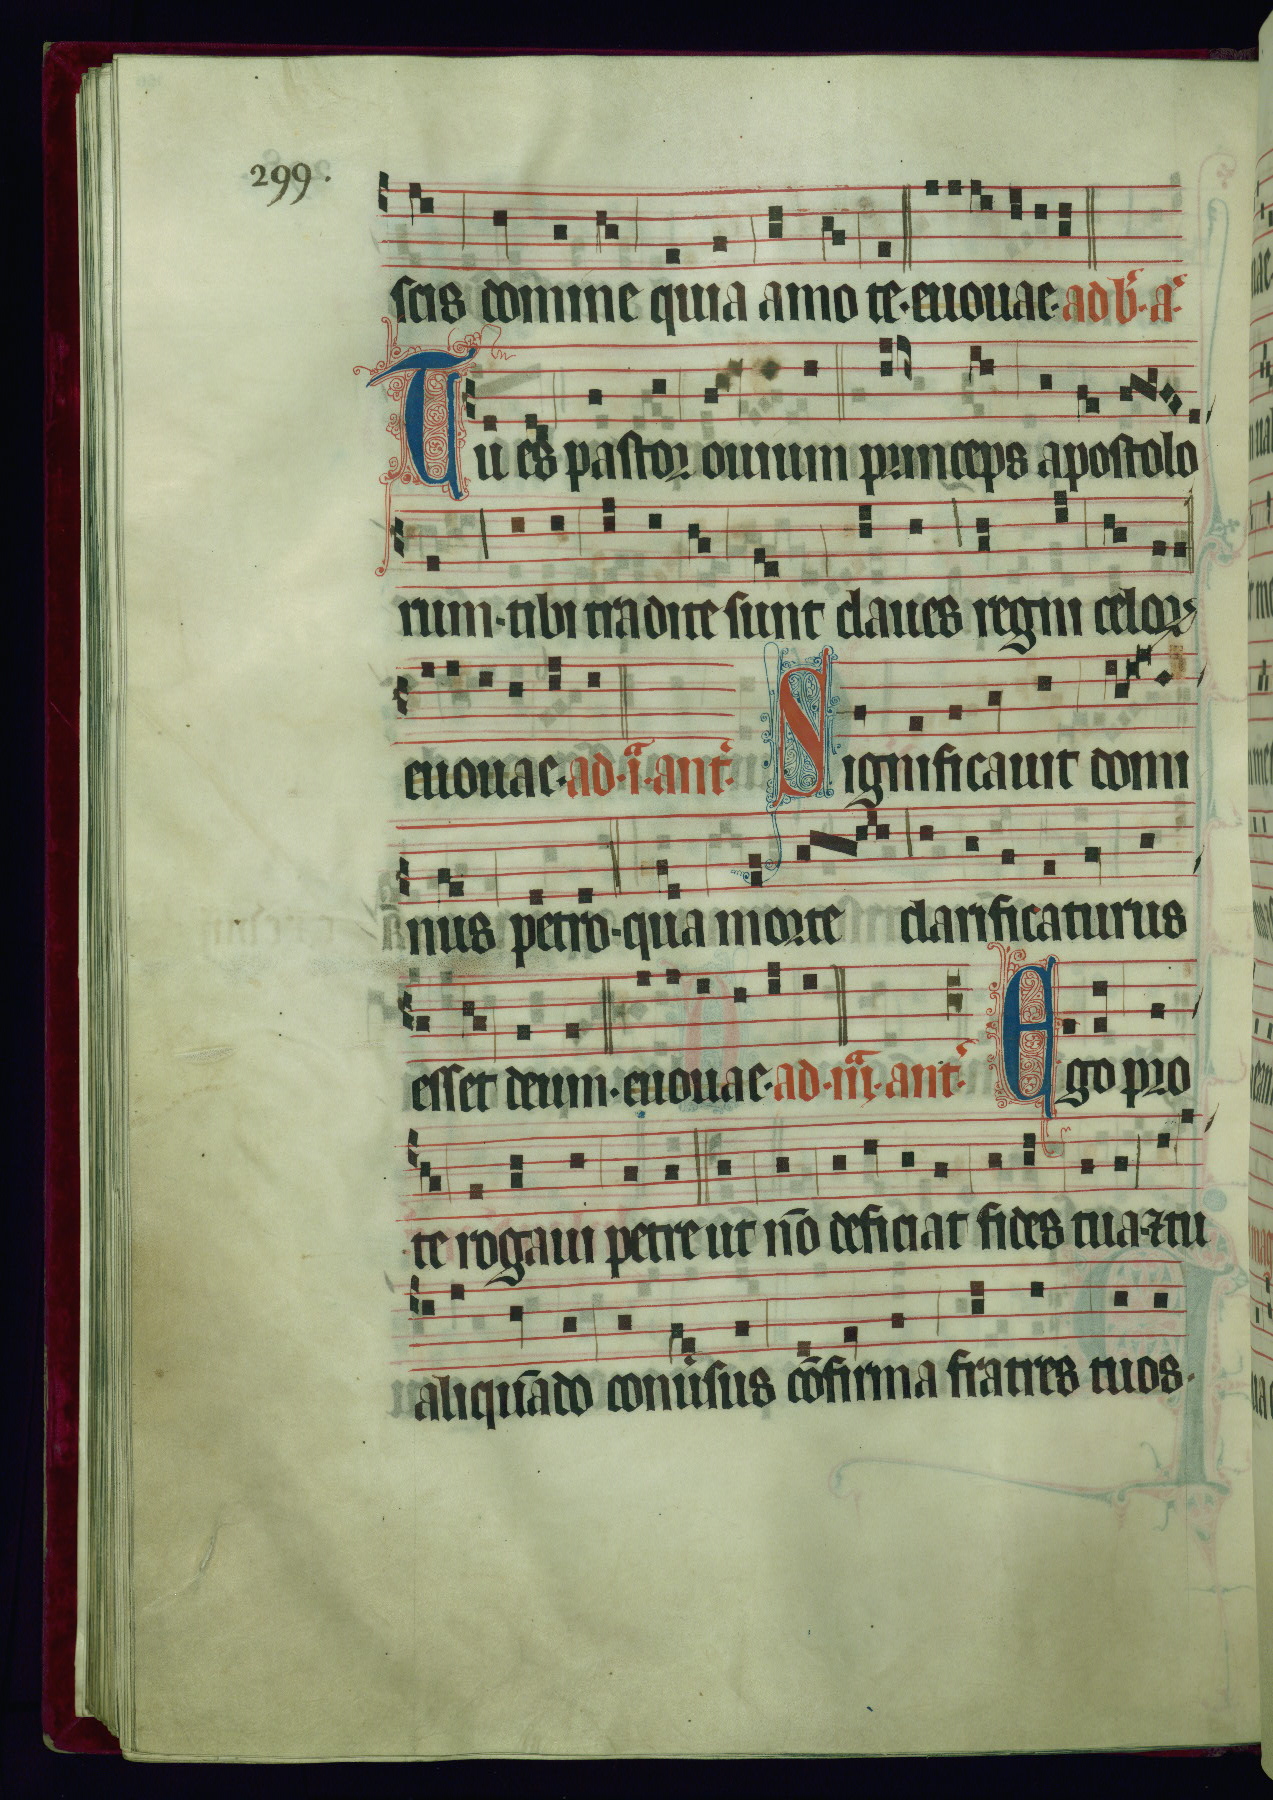 299.
scis domine quia amo te. euouae. ad b̄. a᷎.
Tu es pastor ouium princeps apostolo
rum. tibi tradite sunt claues regni celoꝝ
euouae. ad. i᷎. ant᷎. Significauit domi
nus petro. qua morte clarificaturus
esset deum. euouae. ad. iij᷎. ant᷎. Ego pro
te rogaui petre ut nō deficiat fides tua. ⁊ tu
aliqūado conuˀsus cōfirma fratres tuos.